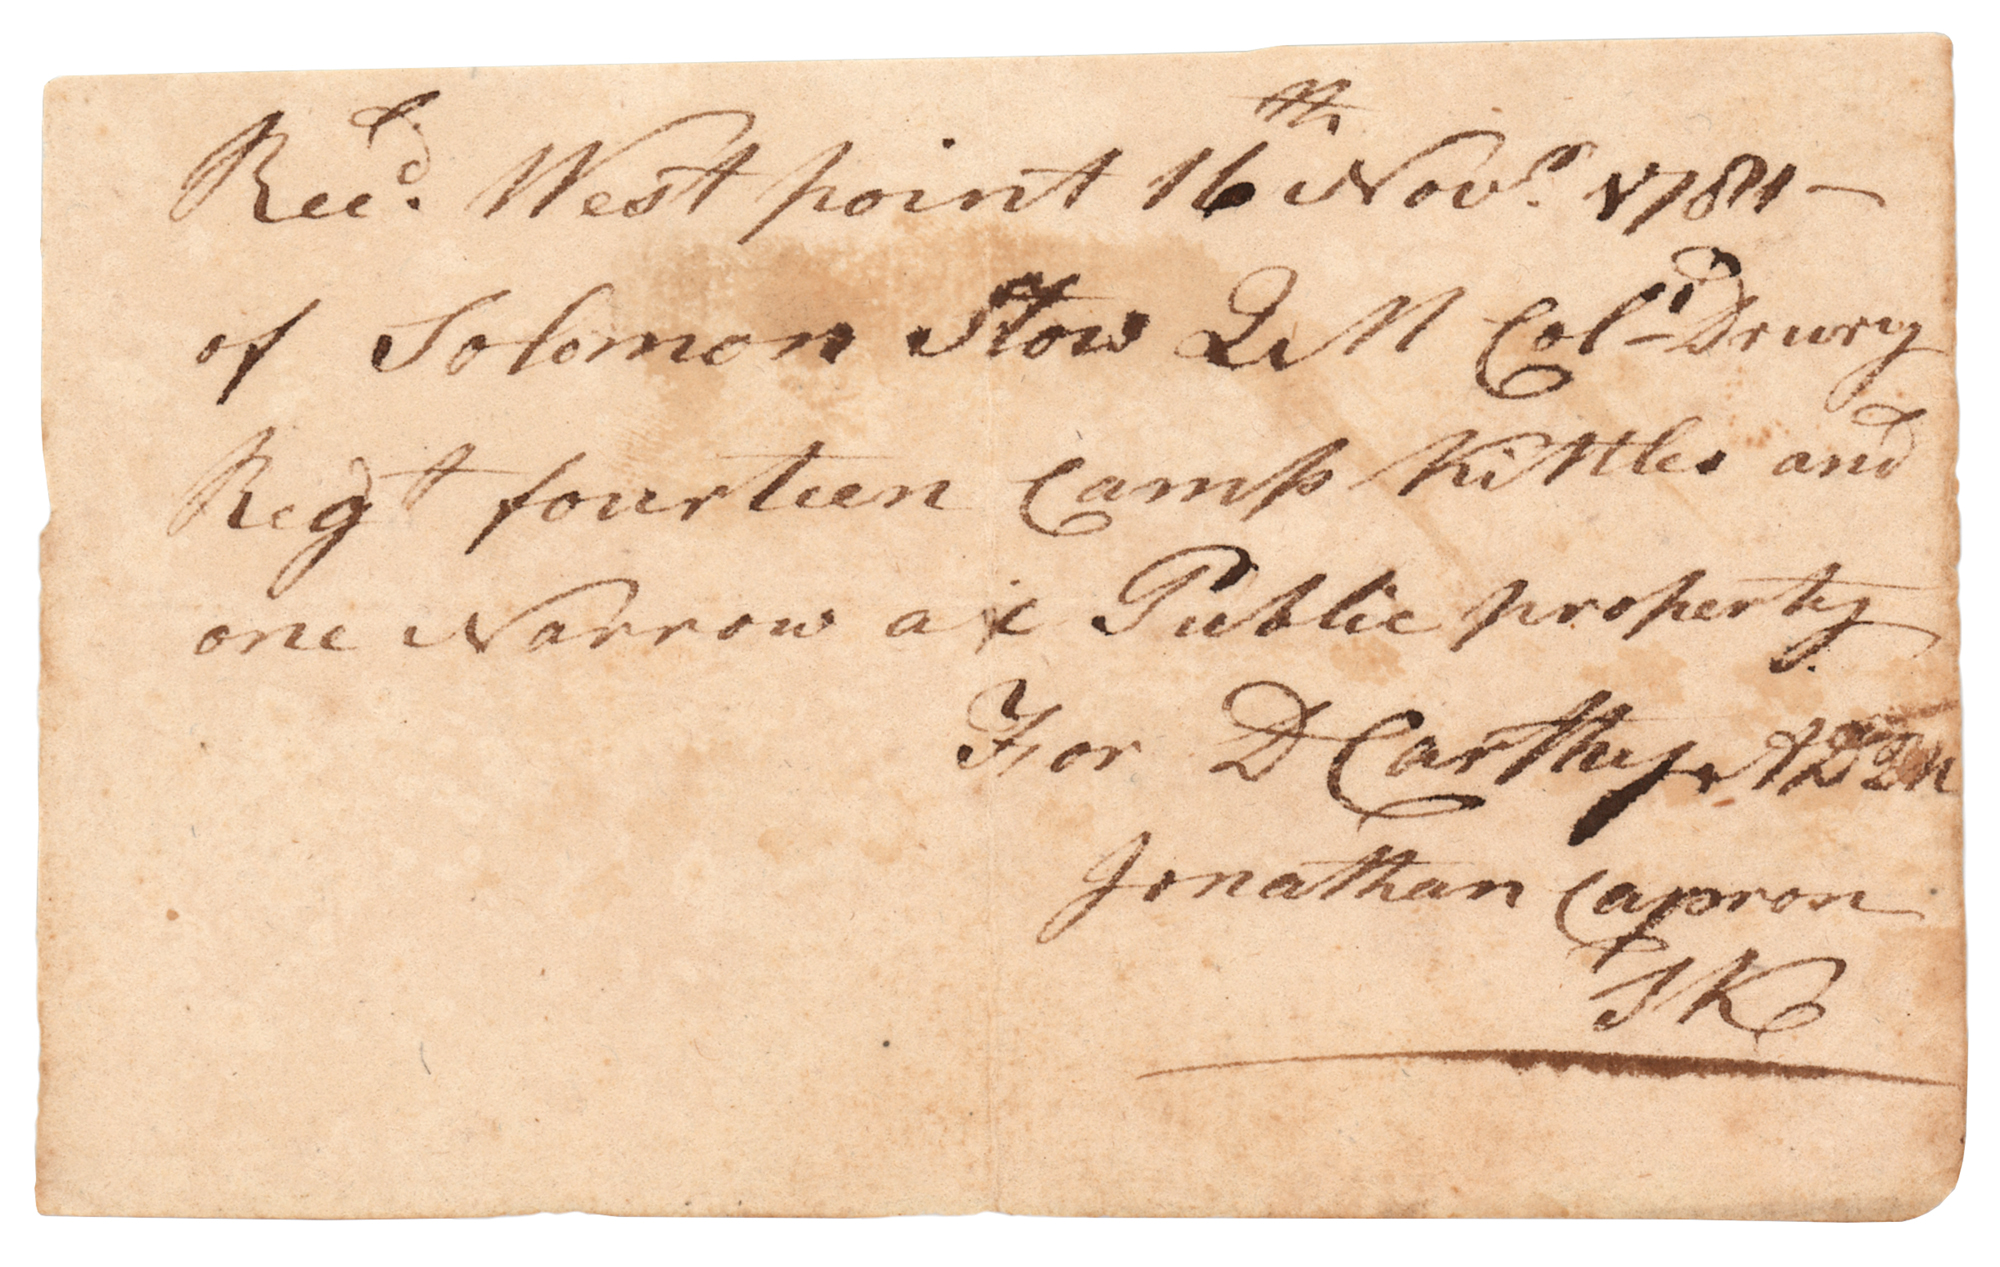 Recd. West point 16th Novr. 1781 —
of Solomon Stow QM Coll Drury
Regt fourteen Camp Kittles and
one Narrow ax Public property
For D Carthy ADQM
Jonathan Capron
SK